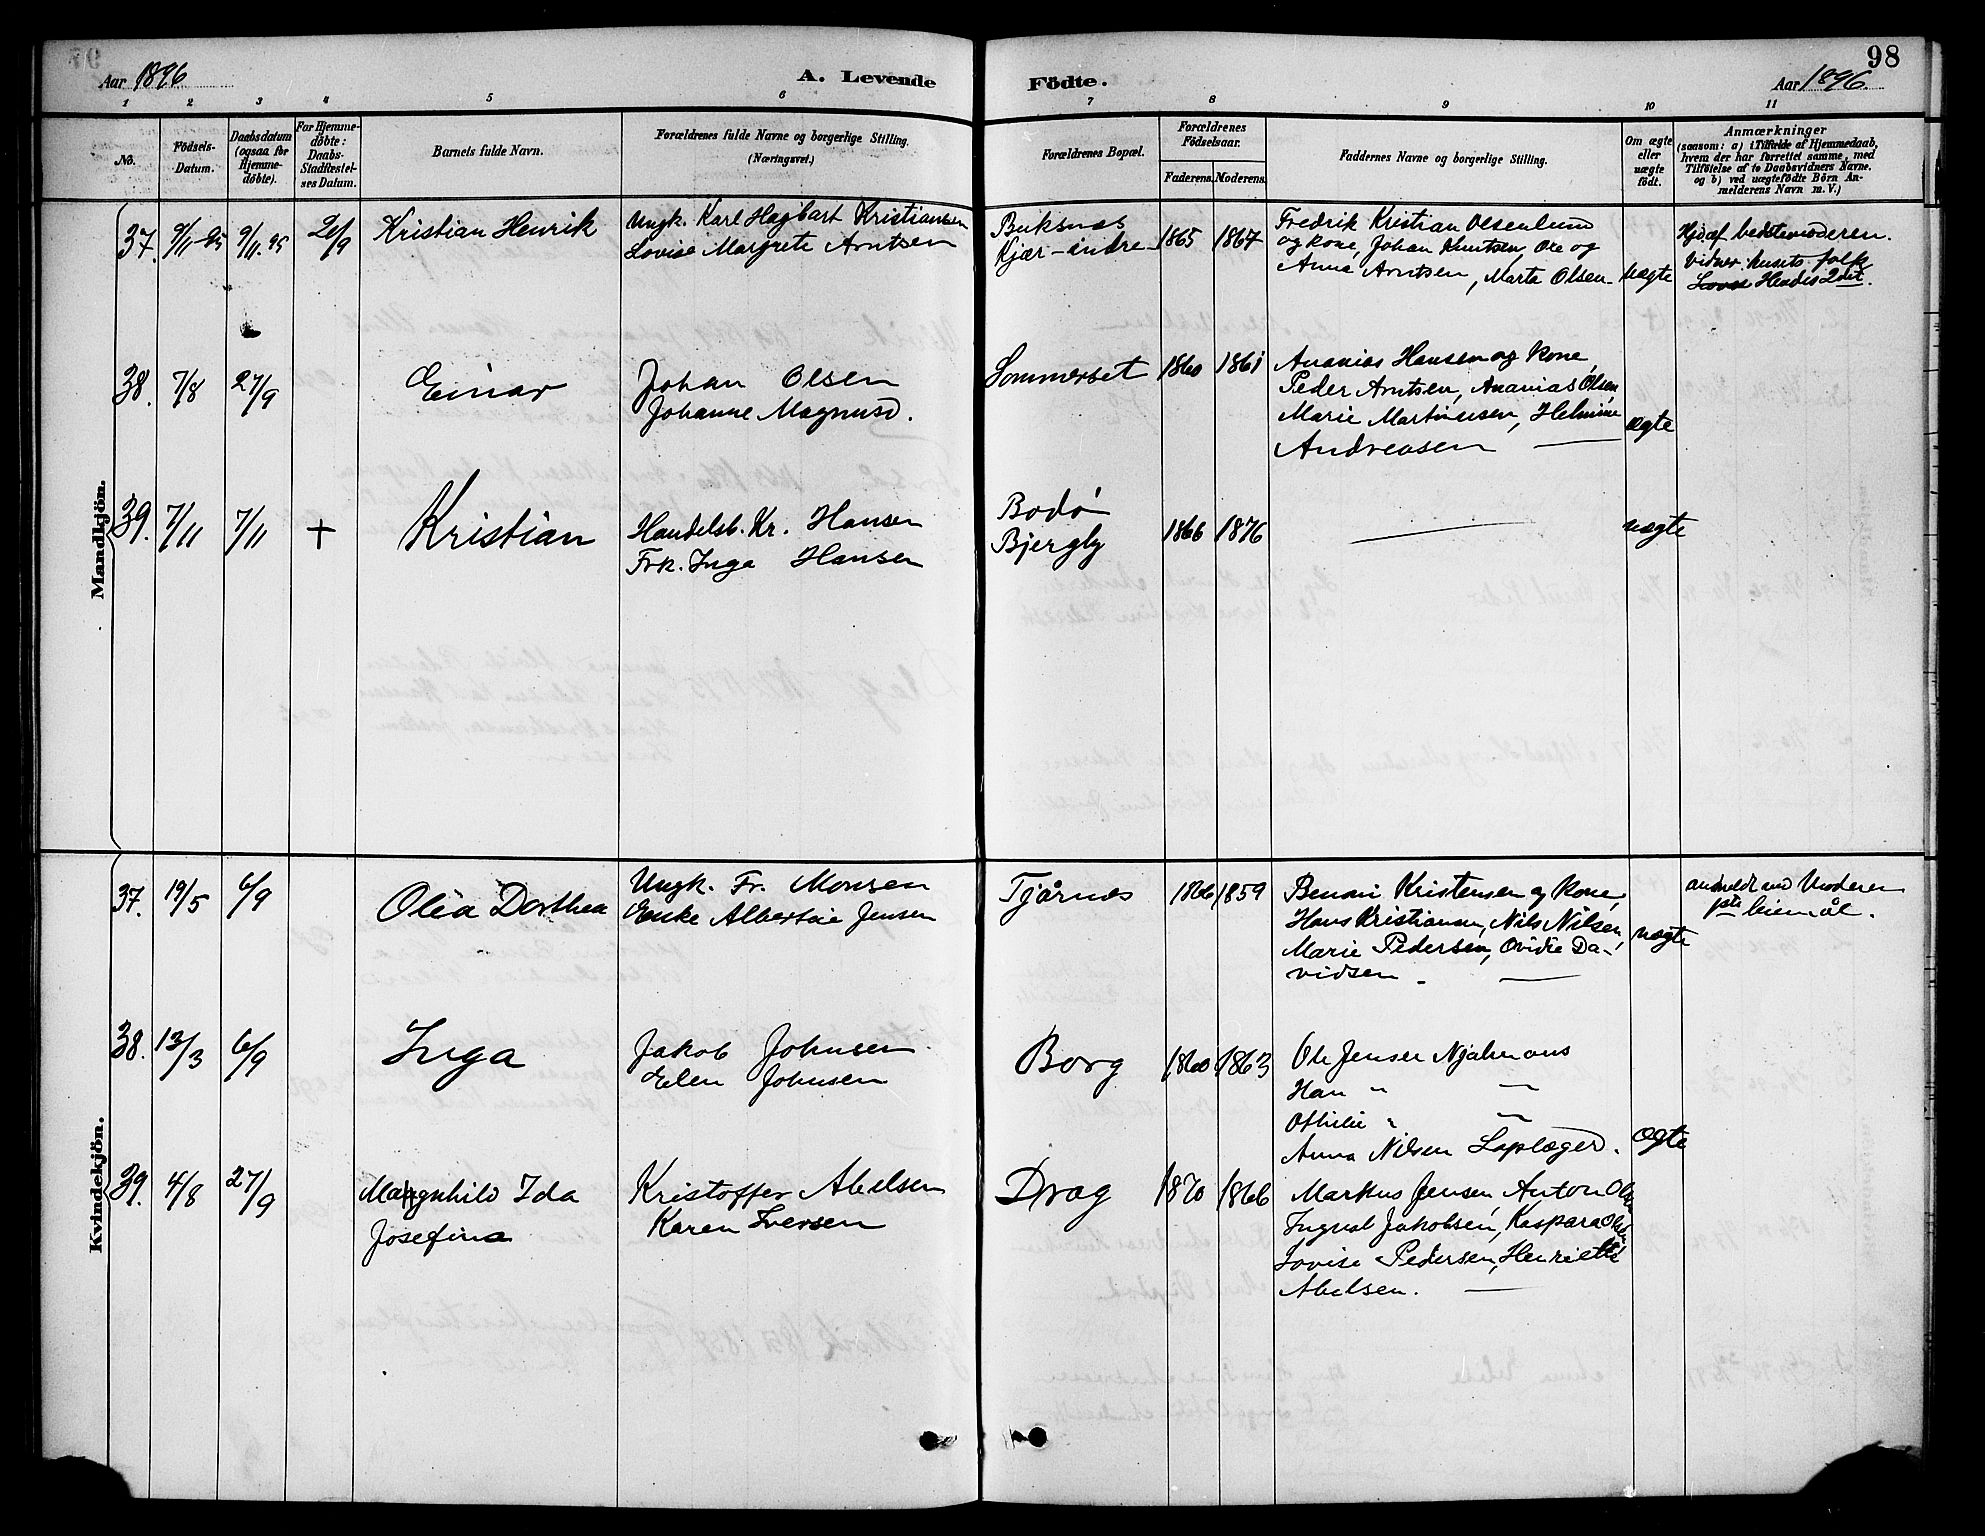 98
Aar 1896. A. Levende Födte. Aar 1896.
1 2 3 4 5 6 7 8 9 10 11
No.
Födsels-
Datum.
Daabsdatum
(ogsaa for
Hjemme-
döbte).
For Hjemme-
döbte:
Daabs-
Stadfæstel-
ses Datum.
Barnets fulde Navn.
Forældrenes fulde Navne og borgerlige Stilling.
(Næringsvei.)
Forældrenes Bopæl.
Forældrenes
Födselsaar.
Faderens. Moderens.
Faddernes Navne og borgerlige Stilling.
Om ægte
eller
uægte
födt.
Anmærkninger
(saasom: a) i Tilfælde af Hjemmedaab,
hvem der har forrettet samme, med
Tilföielse af to Daabsvidners Navne.
og b) ved uægtefödte Börn An-
melderens Navn m. V.)
Mandkjön.
37. 9/11-95 9/11.95 26/9 Kristian Henrik
Ungk. Karl Hagbart Kristiansen
Lovise Margrete Arntsen
Buksnes
Kjær-indre
1865 1867
Fredrik Kristian Olsenlund
og kone, Johan Knutsen, Ole og
Anna Arntsen, Marta Olsen
uægte
Hjd. af bedstemoderen.
Vidner: husets folk
Hendes 2det.
38. 7/8 27/9 Einar
Johan Olsen
Johanne Magnusd.
Sommerset 1860 1861
Ananias Hansen og kone,
Peder Arntsen, Ananias Olsen
Marie Martinusen, Helmine
Andreasen
ægte
39. 7/11 7/11 + Kristian
Handelsb. Kr. Hansen
Frk. Inga Hansen
Bodø
Bjergly
1866 1876 uægte
Kvindekjön.
37. 19/5 6/9 Olea Dorthea
Ungk. Fr. Monsen
Enke Jensen
Tjårnes 1866 1859
Benoni Kristensen og kone,
Hans Kristiansen, Nils Nilsen,
Marie Pedersen, Ovidie Da-
vidsen
uægte
anmeldt Moderen
1ste leiermål.
38. 13/3 6/9 Inga
Jakob Johnsen
Elen Johnsen
Borg 1860 1863
Ole Jensen
Han "
Othilie "
Anna Nilsen Laplæger.
ægte
39. 4/8 27/9 Magnhild Ida
Josefina
Kristoffer Abelsen
Karen Iversen
Drag 1870 1866
Markus Jensen, Anton Olsen
Ingval Jakobsen, Kaspara Olsen
Lovise Pedersen, Henriette
Abelsen.